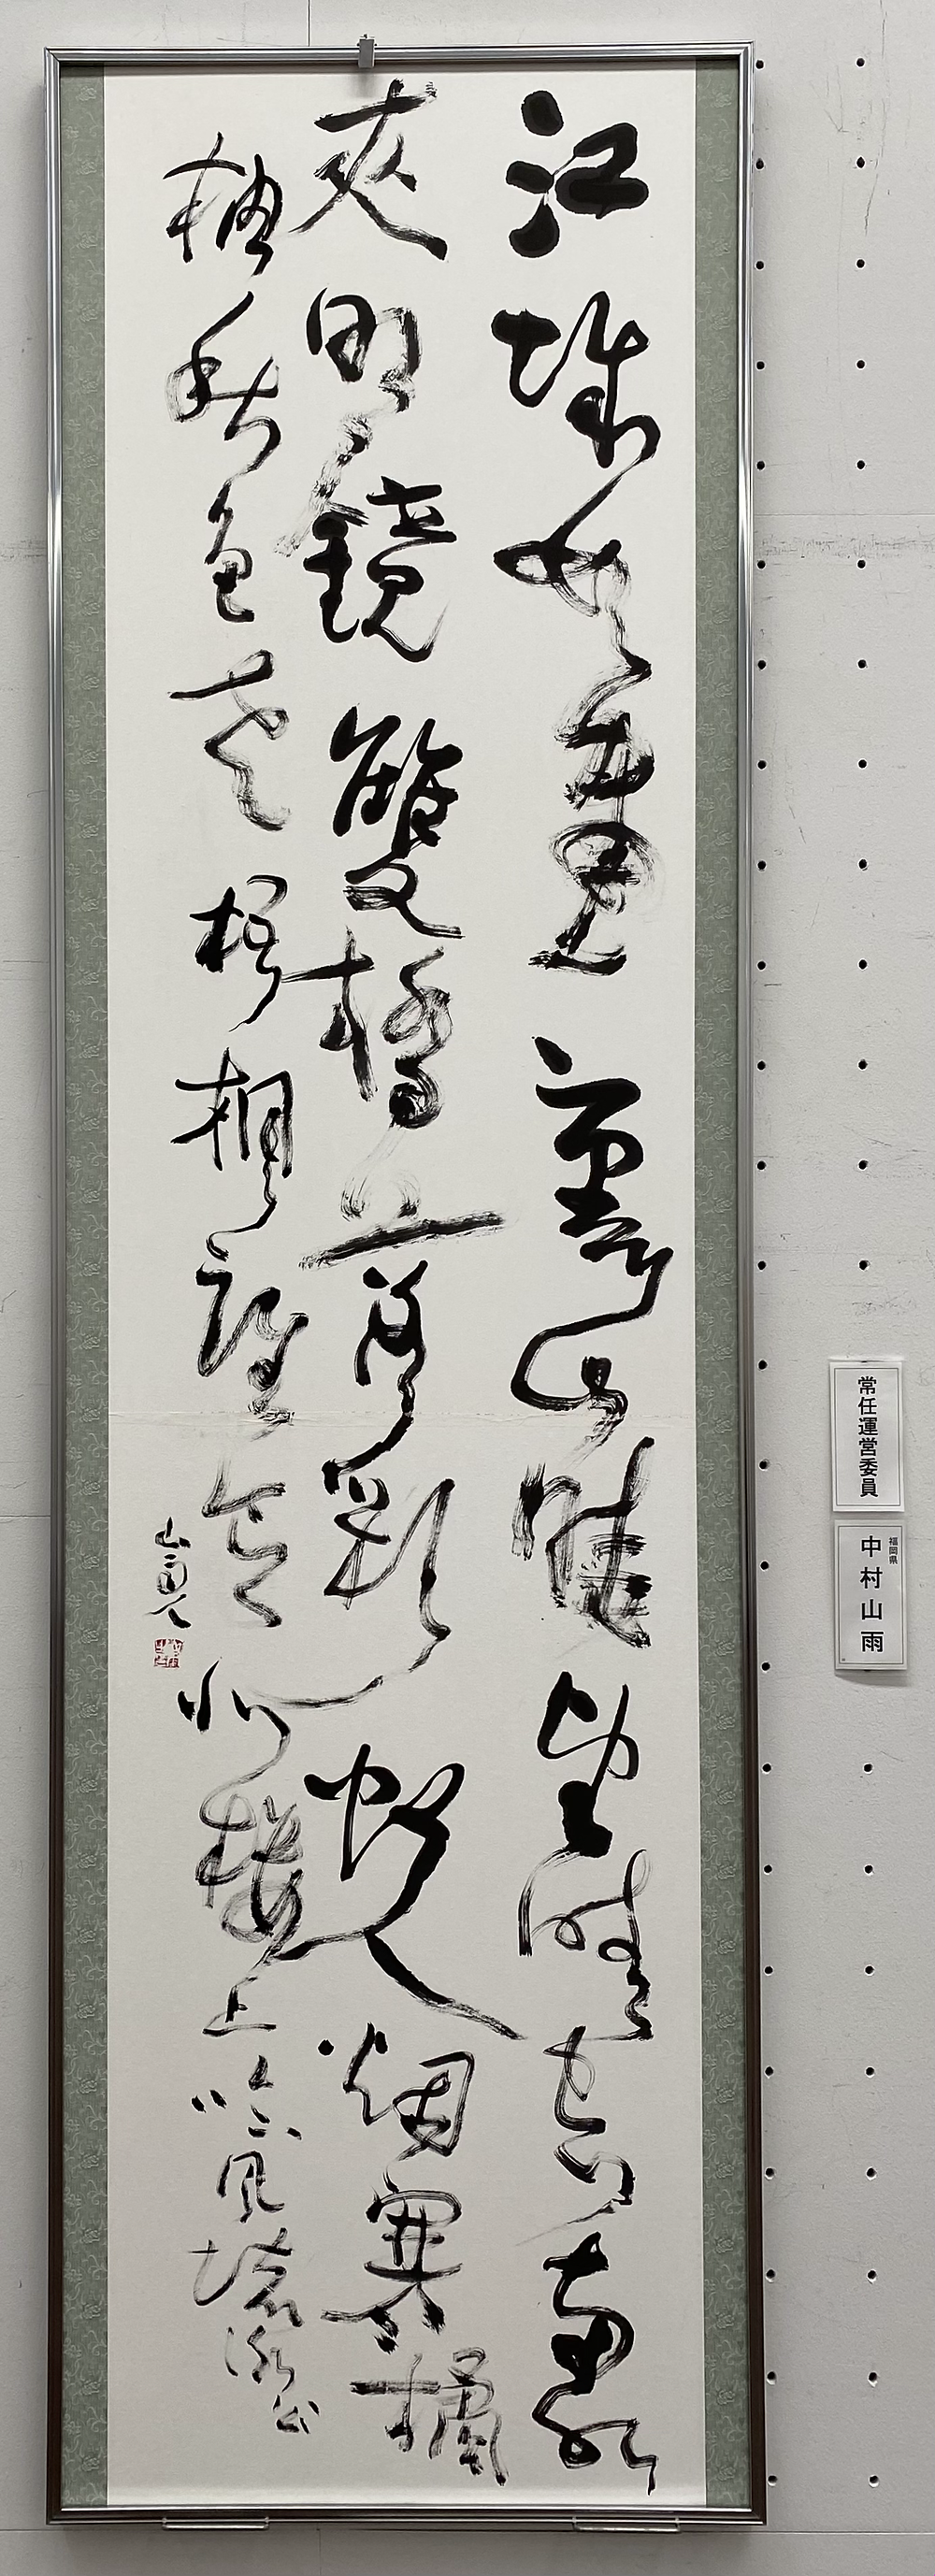 江城如畫裏山曉望晴空兩水
夾明鏡雙橋落彩虹人烟寒橘
柚秋色老梧桐誰念北樓上臨風懐謝公
山雨
常任運営委員
福岡県
中村山雨